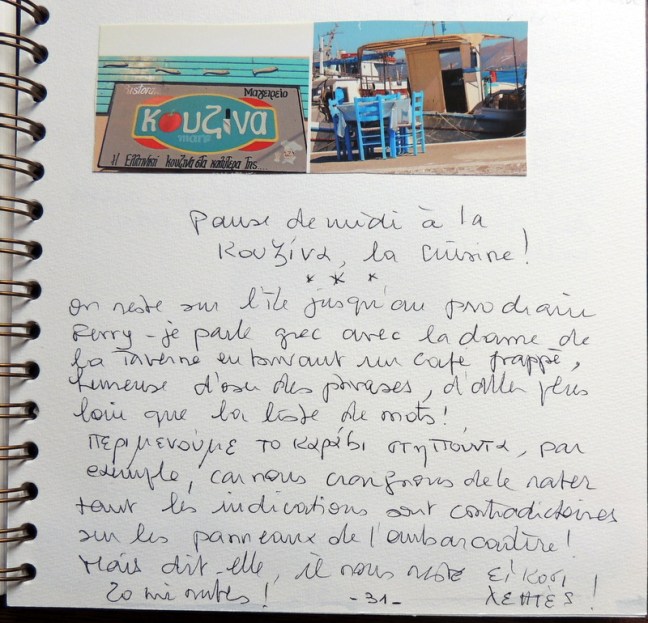 Μαγειρείο
Κουζίνα
mare
Η Ελληνική κουζίνα στα καλύτερα της...
Pause de midi à la
Κουζίνα, la cuisine!
* * *
On reste sur l'île jusqu'au prochain
ferry - je parle grec avec la dame de
la taverne en buvant un café frappé,
heureuse d'oser des phrases, d'aller plus
loin que la liste de mots!
περιμενούμε το καράβι στη πούντα, par
exemple, car nous craignons de le rater
tant les indications sont contradictoires
sur les panneaux de l'embarcadère!
Mais dit-elle, il nous reste είκοσι
20 minutes! λεπτές!
-31-